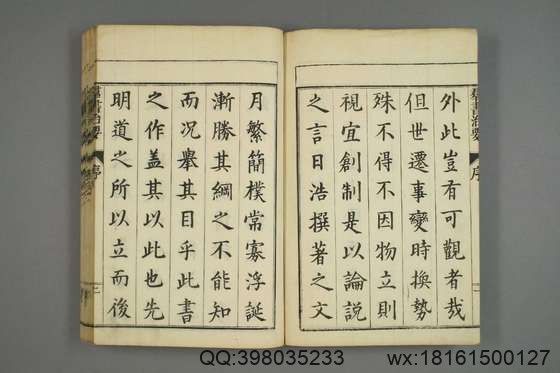 外此豈有可觀者哉
但世遷事變時換勢
殊不得不因物立則
視宜創制是以論説
之言日浩撰著之文
月繁簡樸常寡浮誕
漸勝其綱之不能知
而況舉其目乎此書
之作蓋其以此也先
明道之所以立而後
羣書治要
序
羣書治要
序
二
QQ:398035233
wx:18161500127